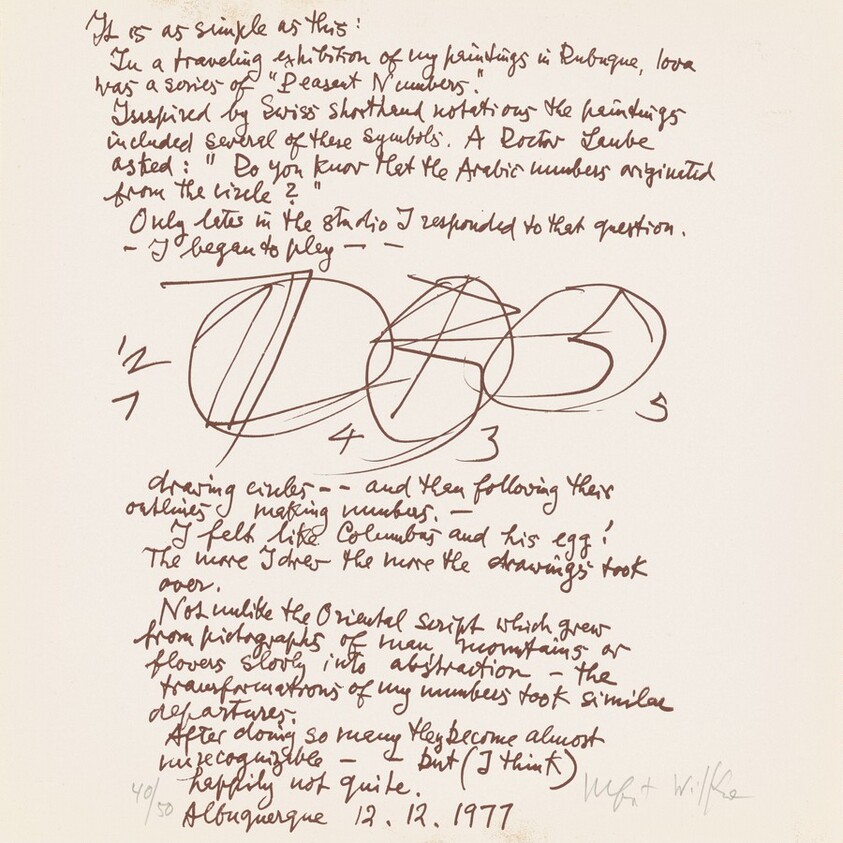 It is as simple as this:
In a traveling exhibition of my paintings in Dubuque, Iowa
was a series of "Peasant Numbers."
Inspired by Swiss shorthand notations the paintings
included several of these symbols. A Doctor Laube
asked: " Do you know that the Arabic numbers originated
from the circle ? "
Only later in the studio I responded to that question.
- I began to play - -
1/2
7
4
3
5
drawing circles -- and then following their
outlines making numbers. -
I felt like Columbus and his egg!
The more I drew the more the drawings took
over.
Not unlike the Oriental script which grew
from pictographs of man, mountains or
flowers slowly into abstraction - the
transformations of my numbers took similar
departures.
After doing so many they become almost
unrecognizable - - but (I think)
happily not quite.
40/50
Albuquerque 12. 12. 1977